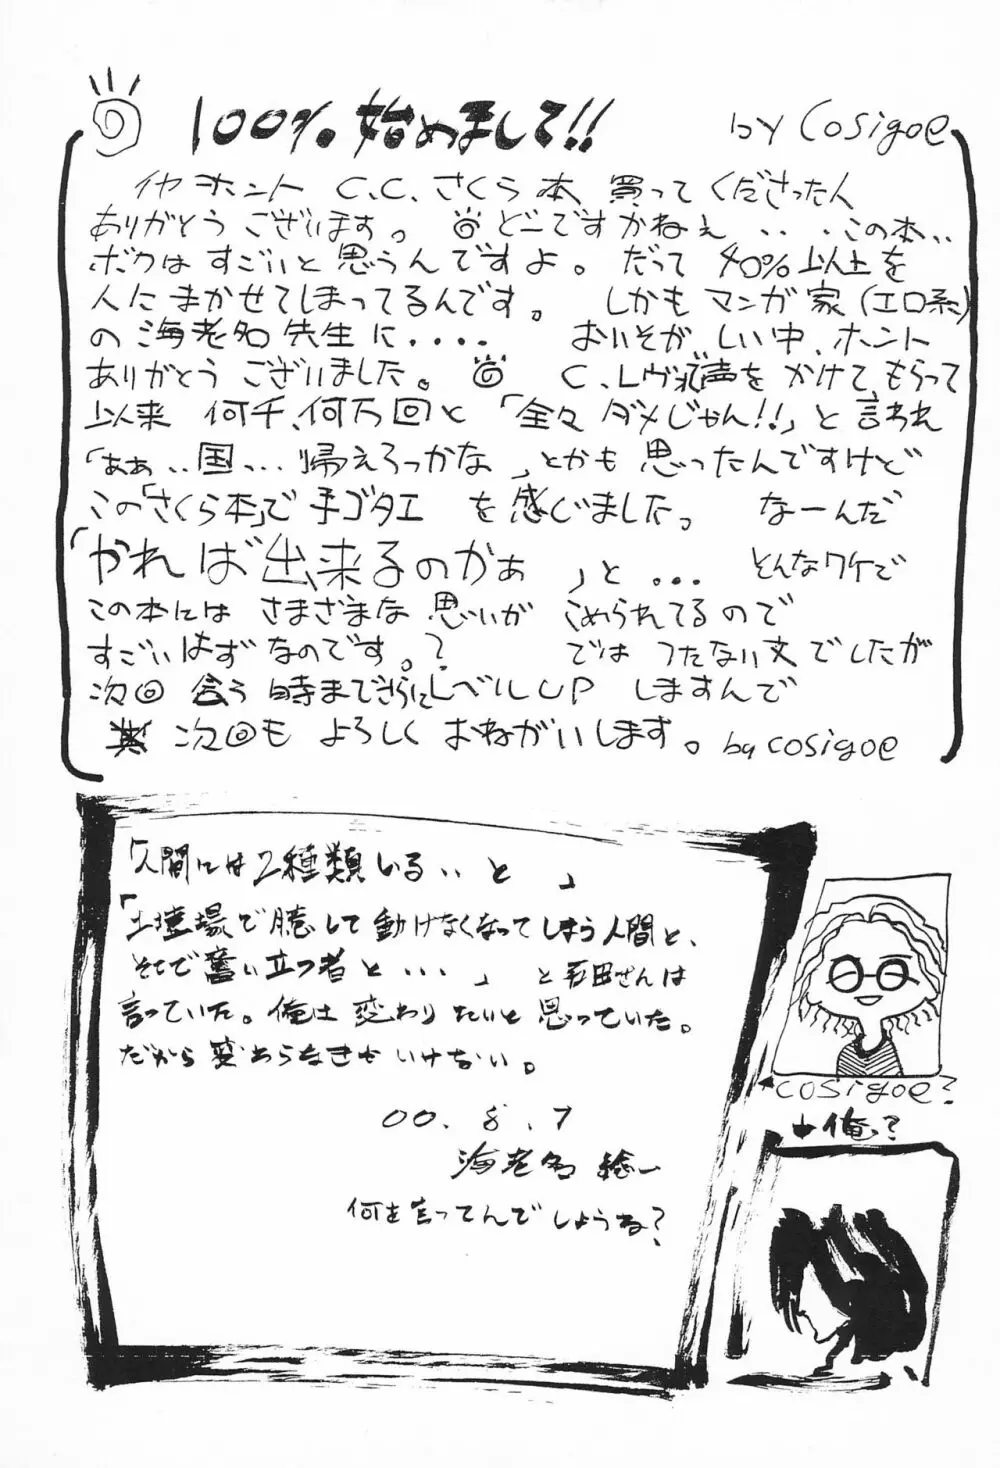 100% 始めまして!! by Cosigoe
イヤ ホント C.C.さくら本 買ってくださった人
ありがとう ございます。 どーですかねぇ ‥ ・この本‥
ボクは すごいと 思うんですよ。 だって 40%以上を
人に まかせてしまってるんです。 しかも マンガ家(エロ系)
の 海老名 先生に・・・・ おいそがしい中、ホント
ありがとう ございました。 C.レヴォで声を かけて、もらって
以来 何千、何万回と 「全々 ダメじゃん!!」と 言われ
「ああ‥国‥・帰えろっかな」とかも 思ったんですけど
この「さくら本」で 手ゴタエ を 感じました。 なーんだ
「やれば 出来るのかぁ 」と ・・・ そんなワケで
この本には さまざまな 思いが こめられてるので
すごいはず なのです。? では つたない文 でしたが
次回 会う 時までさらにレベルUP しますんで
次回も よろしく おねがいします。by cosigoe
「人間には2種類いる‥ と 」
「土壇場で 臆して 動けなくなってしまう人間と、
そこで奮い立つ者と・・・」 と 石田さんは
言っていた。俺は 変わり たいと 思っていた。
だから 変わらなきゃ いけない。
00. 8. 7
海老名 総一
何を言ってんでしょうね?
cosigoe?
俺っ?